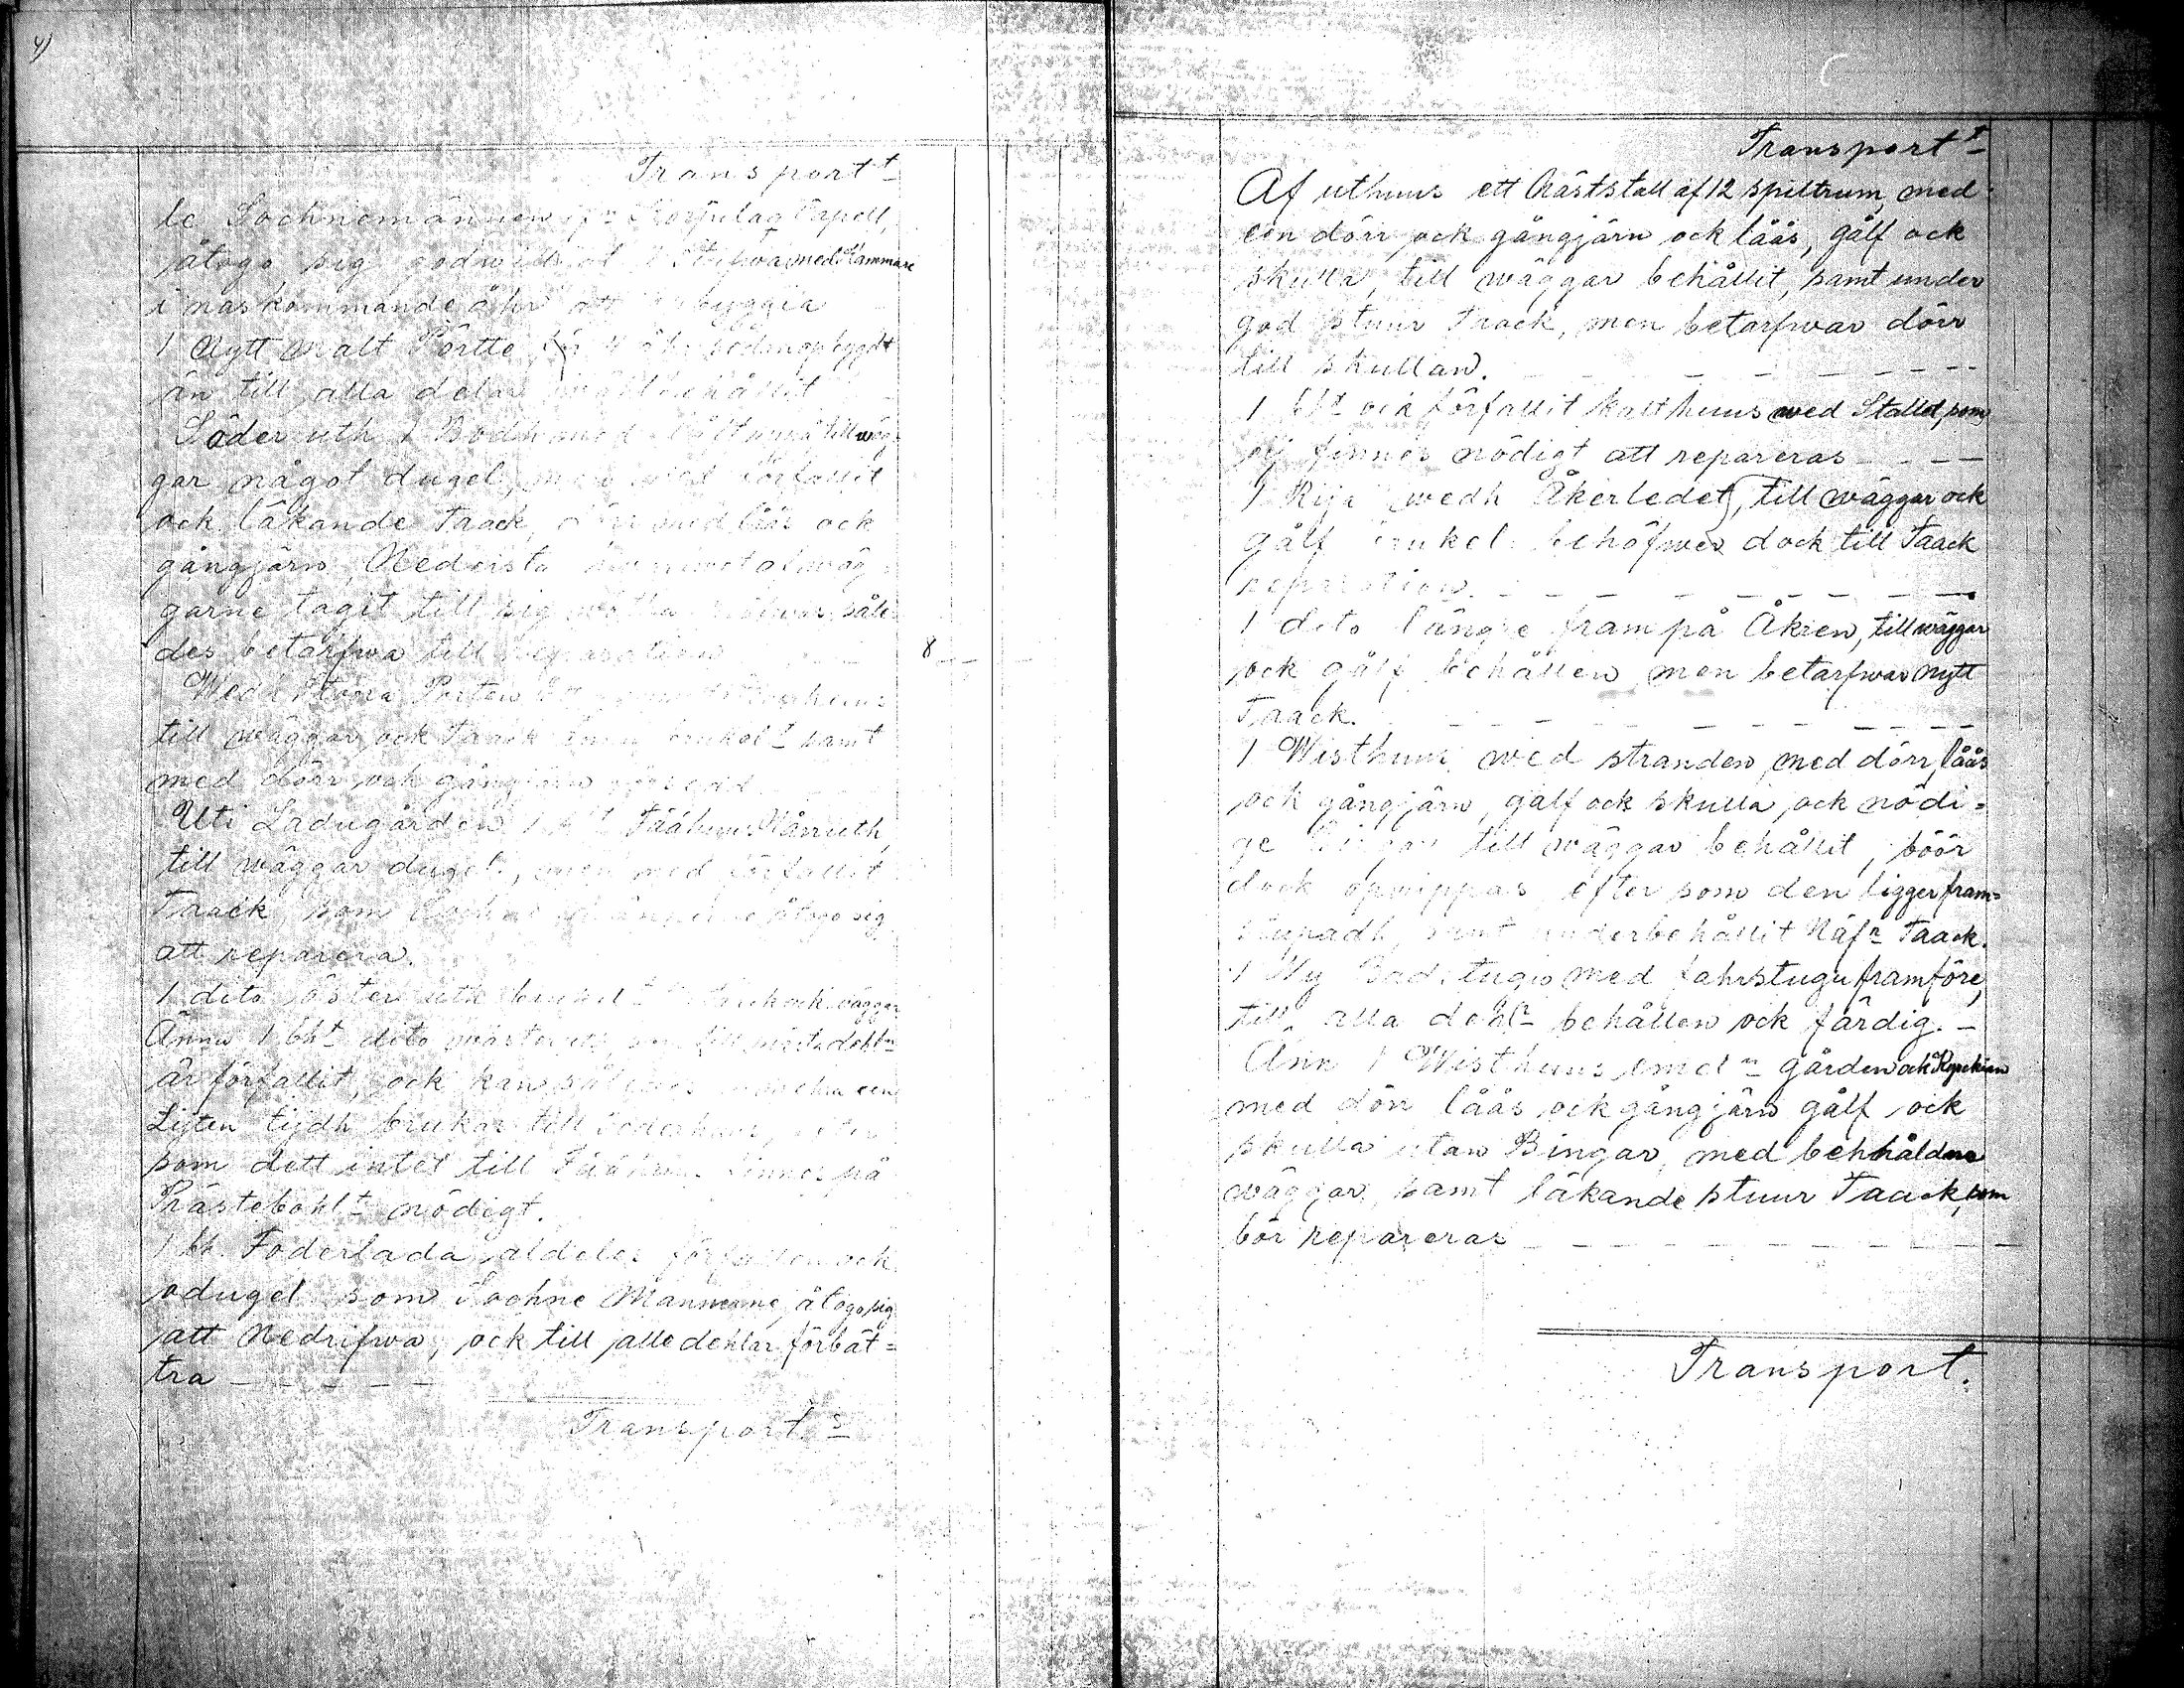 4)
Transport t
le Sochnemännen
åtogo sig godwill
Stufwa med Kammare
i näskommande åhr att byggia
1 Nytt malt Pörtte, för 4 åhr sedan opbyggdt
än till alla delar behållit
Söder uth 1 Bodh med till wäg
gar något dugel, men med förfallit
och läkande Taack, dörr med låås ock
gångjärn, Nedersta af wäg
garne tagit till sig såle
des betarfwa till reparation 8 - -
Wedh Stora Porten
till wäggar ock Taack brukel t samt
med dörr och gångjärn
Uti Ladugården 1 Fäähuus Norruth,
till wäggar dugel., men med förfallit
Taack som åtogo sig
att reparera.
1 dito öster uth Taack och wäggar
Ännu 1 bht dito wäster uth, som till mästa dehln
är förfallit, ock kan een
Lijten tijdh brukas till foderhuus, efter
som dett intet till Fäähuus finnes på
Prästebohl t nödigt.
1 bh. Foderlada aldeles förfallen ock
odugel som Sochne Mannerne, åtogo sig
att Nedrifwa, ock till alle dehlar förbät=
tra - - - - -
Transport s
Transport t
Af uthuus ett Häststall af 12 spiltrum, med
een dörr ock gångjärn ock låås, gålf ock
skulla, till wäggar behållit, samt under
god stuur Taack, men betarfwar dörr
till skullan. - - - - - - -
1 bht och förfallit kalthuus wed Stallet, som
eij finnes nödigt att repareras - - -
1 Rija wedh Åkerledet, till wäggar ock
gålf brukel. behöfwer dock till Taack
reparation. - - - - - - -
1 dito längre fram på Åkren, till wäggar
ock gålf behållen men betarfwar nytt
Taack. - - - - - - -
1 Wisthuus wed stranden med dörr, låås
ock gångjärn, gålf ock skulla ock nödi=
ge Bingar till wäggar behållit, böör
dock opwippas efter som den ligger fram=
stupadh, samt under behållit Näfr Taack.
1 Ny Badstugu med fahrstugu framföre,
till alla dehlr behållen ock färdig. -
Änn 1 Wisthuus emeln gården och Kyrckian
med dörr låås ock gångjärn gålf ock
skulla utan Bingar, med behhåldne
wäggar, samt läkande stuur Taack, som
bör repareras - - - - - - -
Transport.